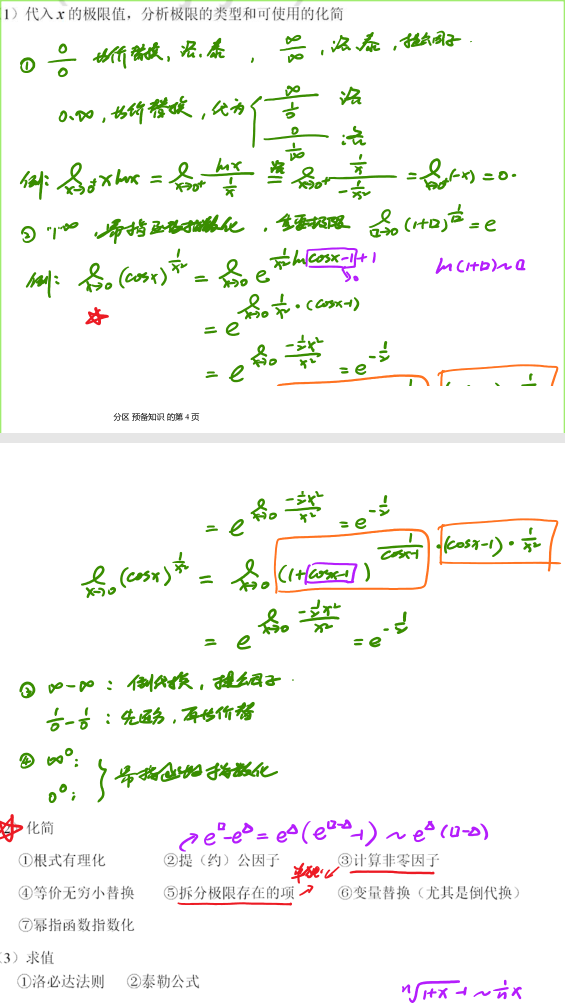 1）代入 x 的极限值，分析极限的类型和可使用的化简
① 0/0 等价替换，洛.泰 ， ∞/∞ ，洛.泰，提公因子
0·∞，等价替换，化为 { ∞/(1/0) 洛
0/(1/∞) 洛
例: lim x→0⁺ x ln x = lim x→0⁺ ln x/(1/x) 洛= lim x→0⁺ (1/x)/(-1/x²) = lim x→0⁺ (-x) = 0.
② "1^∞ ，幂指函数指数化 ，重要极限 lim □→0 (1+□)^(1/□) = e
例: lim x→0 (cos x)^(1/x²) = lim x→0 e^(1/x² ln cos x -1 +1) ln(1+□)~□
→0
= e^(lim x→0 1/x² · (cos x-1))
= e^(lim x→0 (-½x²)/x²) = e^(-½)
分区 预备知识 的第 4 页
= e^(lim x→0 (-½x²)/x²) = e^(-½)
lim x→0 (cos x)^(1/x²) = lim x→0 (1+ cos x-1 )^(1/(cos x-1) · (cos x-1) · 1/x²)
= e^(lim x→0 (-½x²)/x²) = e^(-½)
③ ∞-∞ : 倒代换，提公因子
1/0 - 1/0 : 先通分，再等价替
④ ∞⁰;
0⁰; } 幂指函数指数化
2）化简
e^□-e^△ = e^△(e^(□-△)-1) ~ e^△(□-△)
①根式有理化 ②提（约）公因子 ③计算非零因子
④等价无穷小替换 ⑤拆分极限存在的项 ⑥变量替换（尤其是倒代换）
⑦幂指函数指数化
3）求值
①洛必达法则 ②泰勒公式
ⁿ√(1+x) -1 ~ 1/n x